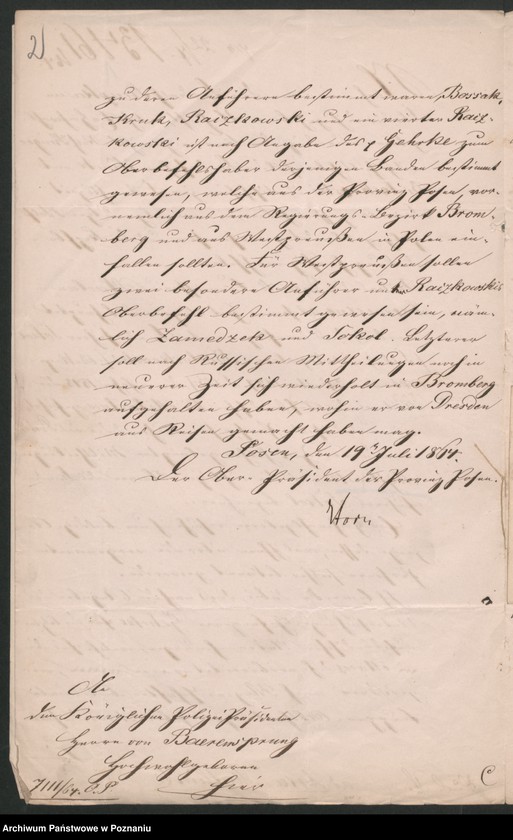 2)
zu deren Anführern bestimmt waren Bossak,
Kruk, Raczkowski und ein vierter Racz-
kowski ist nach Angabe des p Gehrke zum
Oberbefehlshaber derjenigen Banden bestimmt
gewesen, welche aus der Provinz Posen, vor-
nemlich aus dem Regierungs-Bezirk Brom-
berg und aus Westpreußen in Polen ein-
fallen sollten. Für Westpreußen sollen
zwei besondere Anführer unter Raczkowskis
Oberbefehl bestimmt gewesen sein, näm-
lich Zameczek und Sokol. Letzterer
soll nach Russischen Mittheilungen noch in
neuerer Zeit sich wiederholt in Bromberg
aufgehalten haben, wohin er von Dresden
aus Reisen gemacht haben mag.
Posen, den 19 Juli 1864.
Der Ober-Präsident der Provinz Posen.
Horn
An
den Königlichen Polizei Präsidenten
Herrn von Baerensprung
Hochwohlgeboren
hier
/64. O. P.
Archiwum Państwowe w Poznaniu